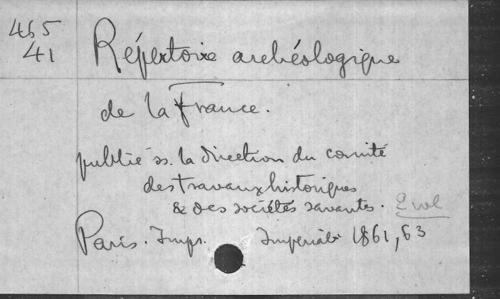 465
41
Répertoire archéologique
de la France.
publié ss. la direction du comité
des travaux historiques
& des sociétés savantes. 2 vol
Paris. Imp. Impériale 1861, 63